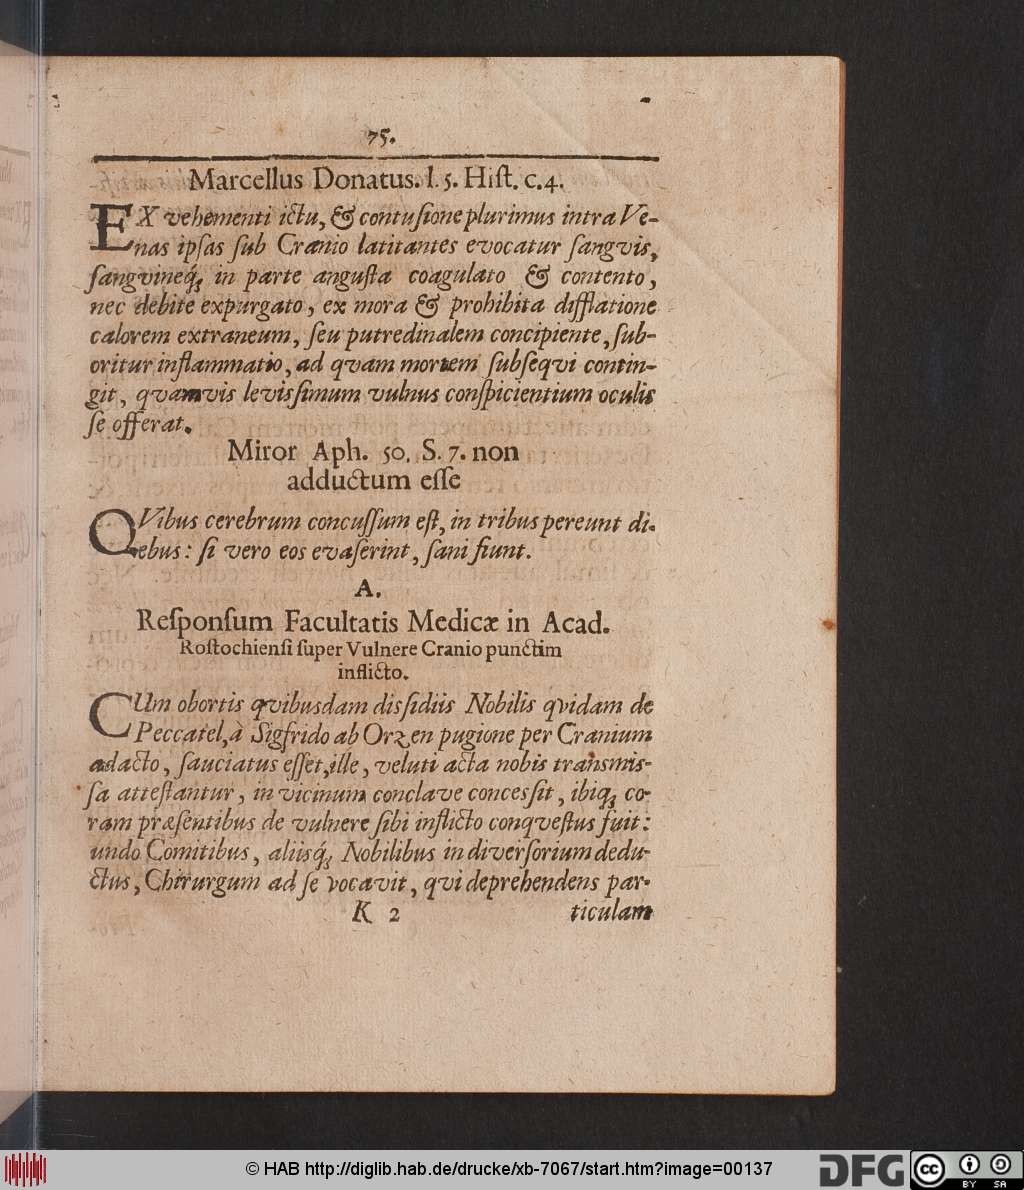 75.
Marcellus Donatus. l. 5. Hiſt. c. 4.
EX vehementi ictu, & contuſione plurimus intra Ve-
nas ipſas ſub Cranio latitantes evocatur ſangvis,
ſangvineq́ꝫ in parte anguſta coagulato & contento,
nec debite expurgato, ex mora & prohibita difflatione
calorem extraneum, ſeu putredinalem concipiente, ſub-
oritur inflammatio, ad qvam mortem ſubſeqvi contin-
git, qvamvis leviſſimum vulnus conſpicientium oculis
ſe offerat.
Miror Aph. 50. S. 7. non
adductum eſſe
QVibus cerebrum concuſſum eſt, in tribus pereunt di-
ebus: ſi vero eos evaſerint, ſani fiunt.
A.
Reſponſum Facultatis Medicæ in Acad.
Roſtochienſi ſuper Vulnere Cranio punctim
inflicto.
CUm obortis qvibusdam diſſidiis Nobilis qvidam de
Peccatel, à Sigfrido ab Orzen pugione per Cranium
adacto, ſauciatus eſſet, ille, veluti acta nobis transmiſ-
ſa atteſtantur, in vicinum conclave conceſſit, ibiqꝫ co-
ram præſentibus de vulnere ſibi inflicto conqveſtus fuit:
undo Comitibus, aliisq́ꝫ Nobilibus in diverſorium dedu-
ctus, Chirurgum ad ſe vocavit, qvi deprehendens par-
K 2 ticulam
© HAB http://diglib.hab.de/drucke/xb-7067/start.htm?image=00137
DFG
cc
BY SA